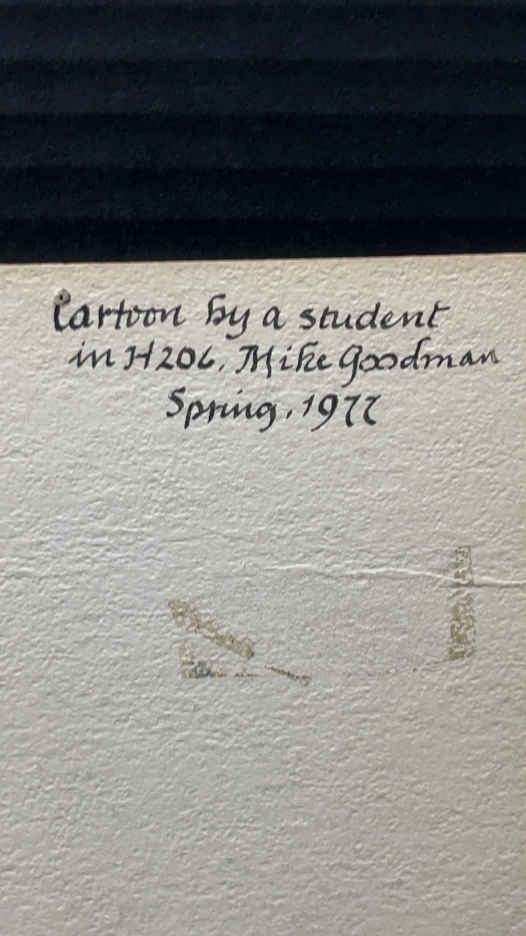 Cartoon by a student
in H206, Mike Goodman
Spring, 1977